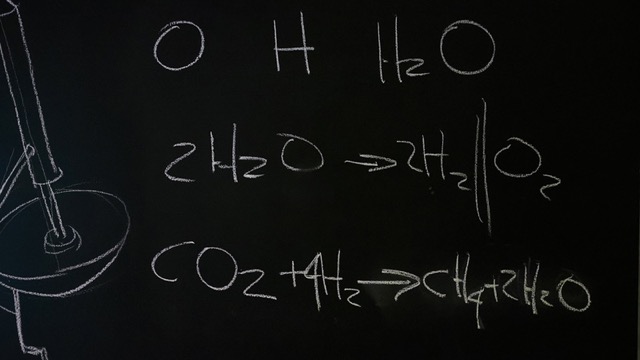 O H H₂O
2H₂O → 2H₂ || O₂
CO₂ + 4H₂ → CH₄ + 2H₂O